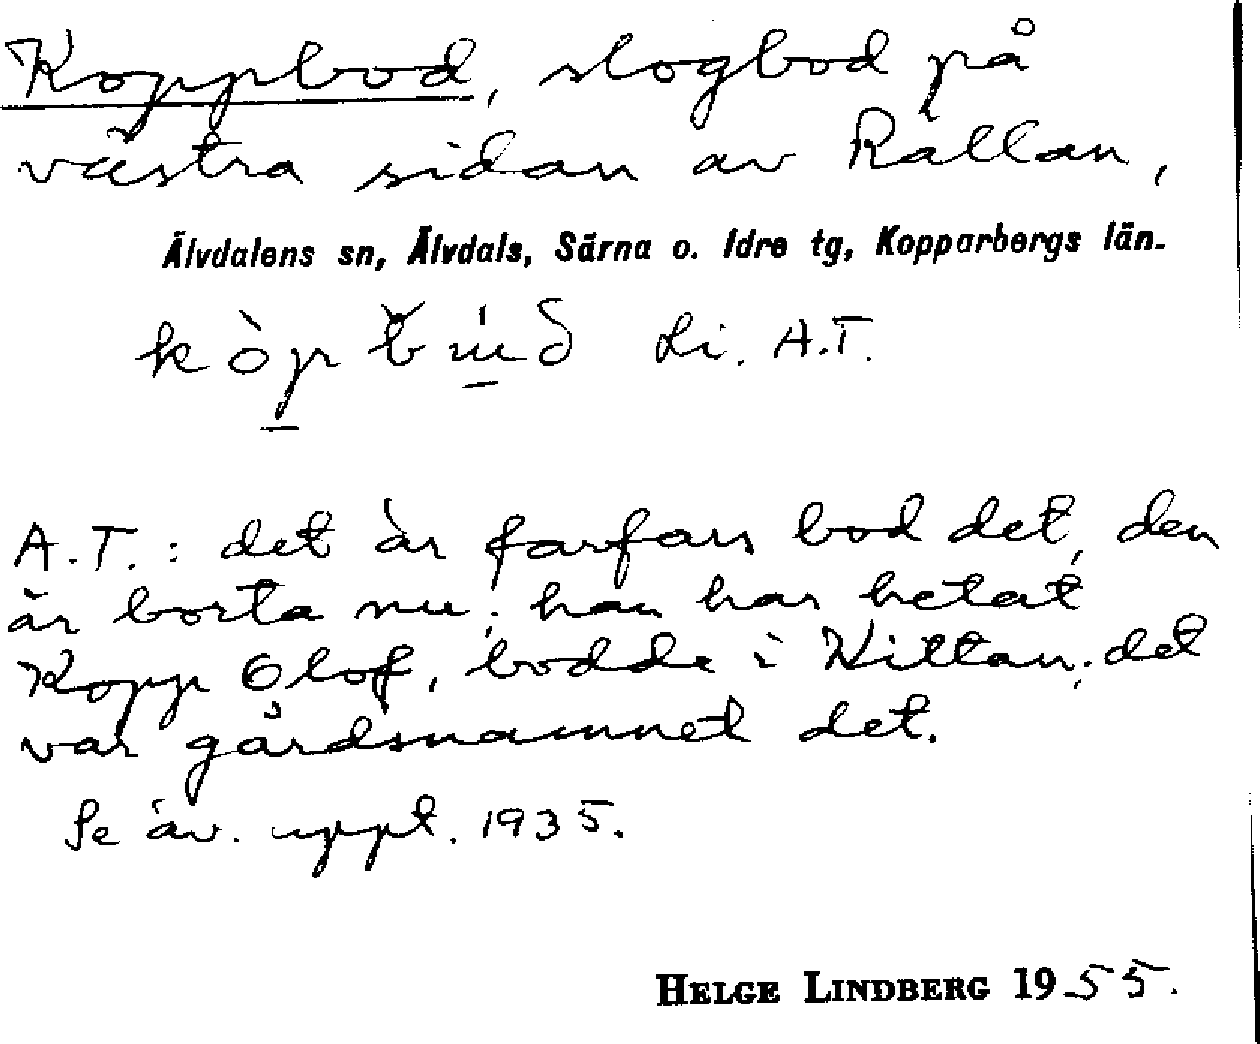 Koppbod, slogbod på
västra sidan av Rållan,
Älvdalens sn, Älvdals, Särna o. Idre tg, Kopparbergs län.
Li. A.T.
A.T.: det är farfars bod det, den
är borta nu; han har hetat
Kopp Olof, bodde i Kittan; det
var gårdsnamnet det.
Se äv. uppt. 1935.
HELGE LINDBERG 1955.